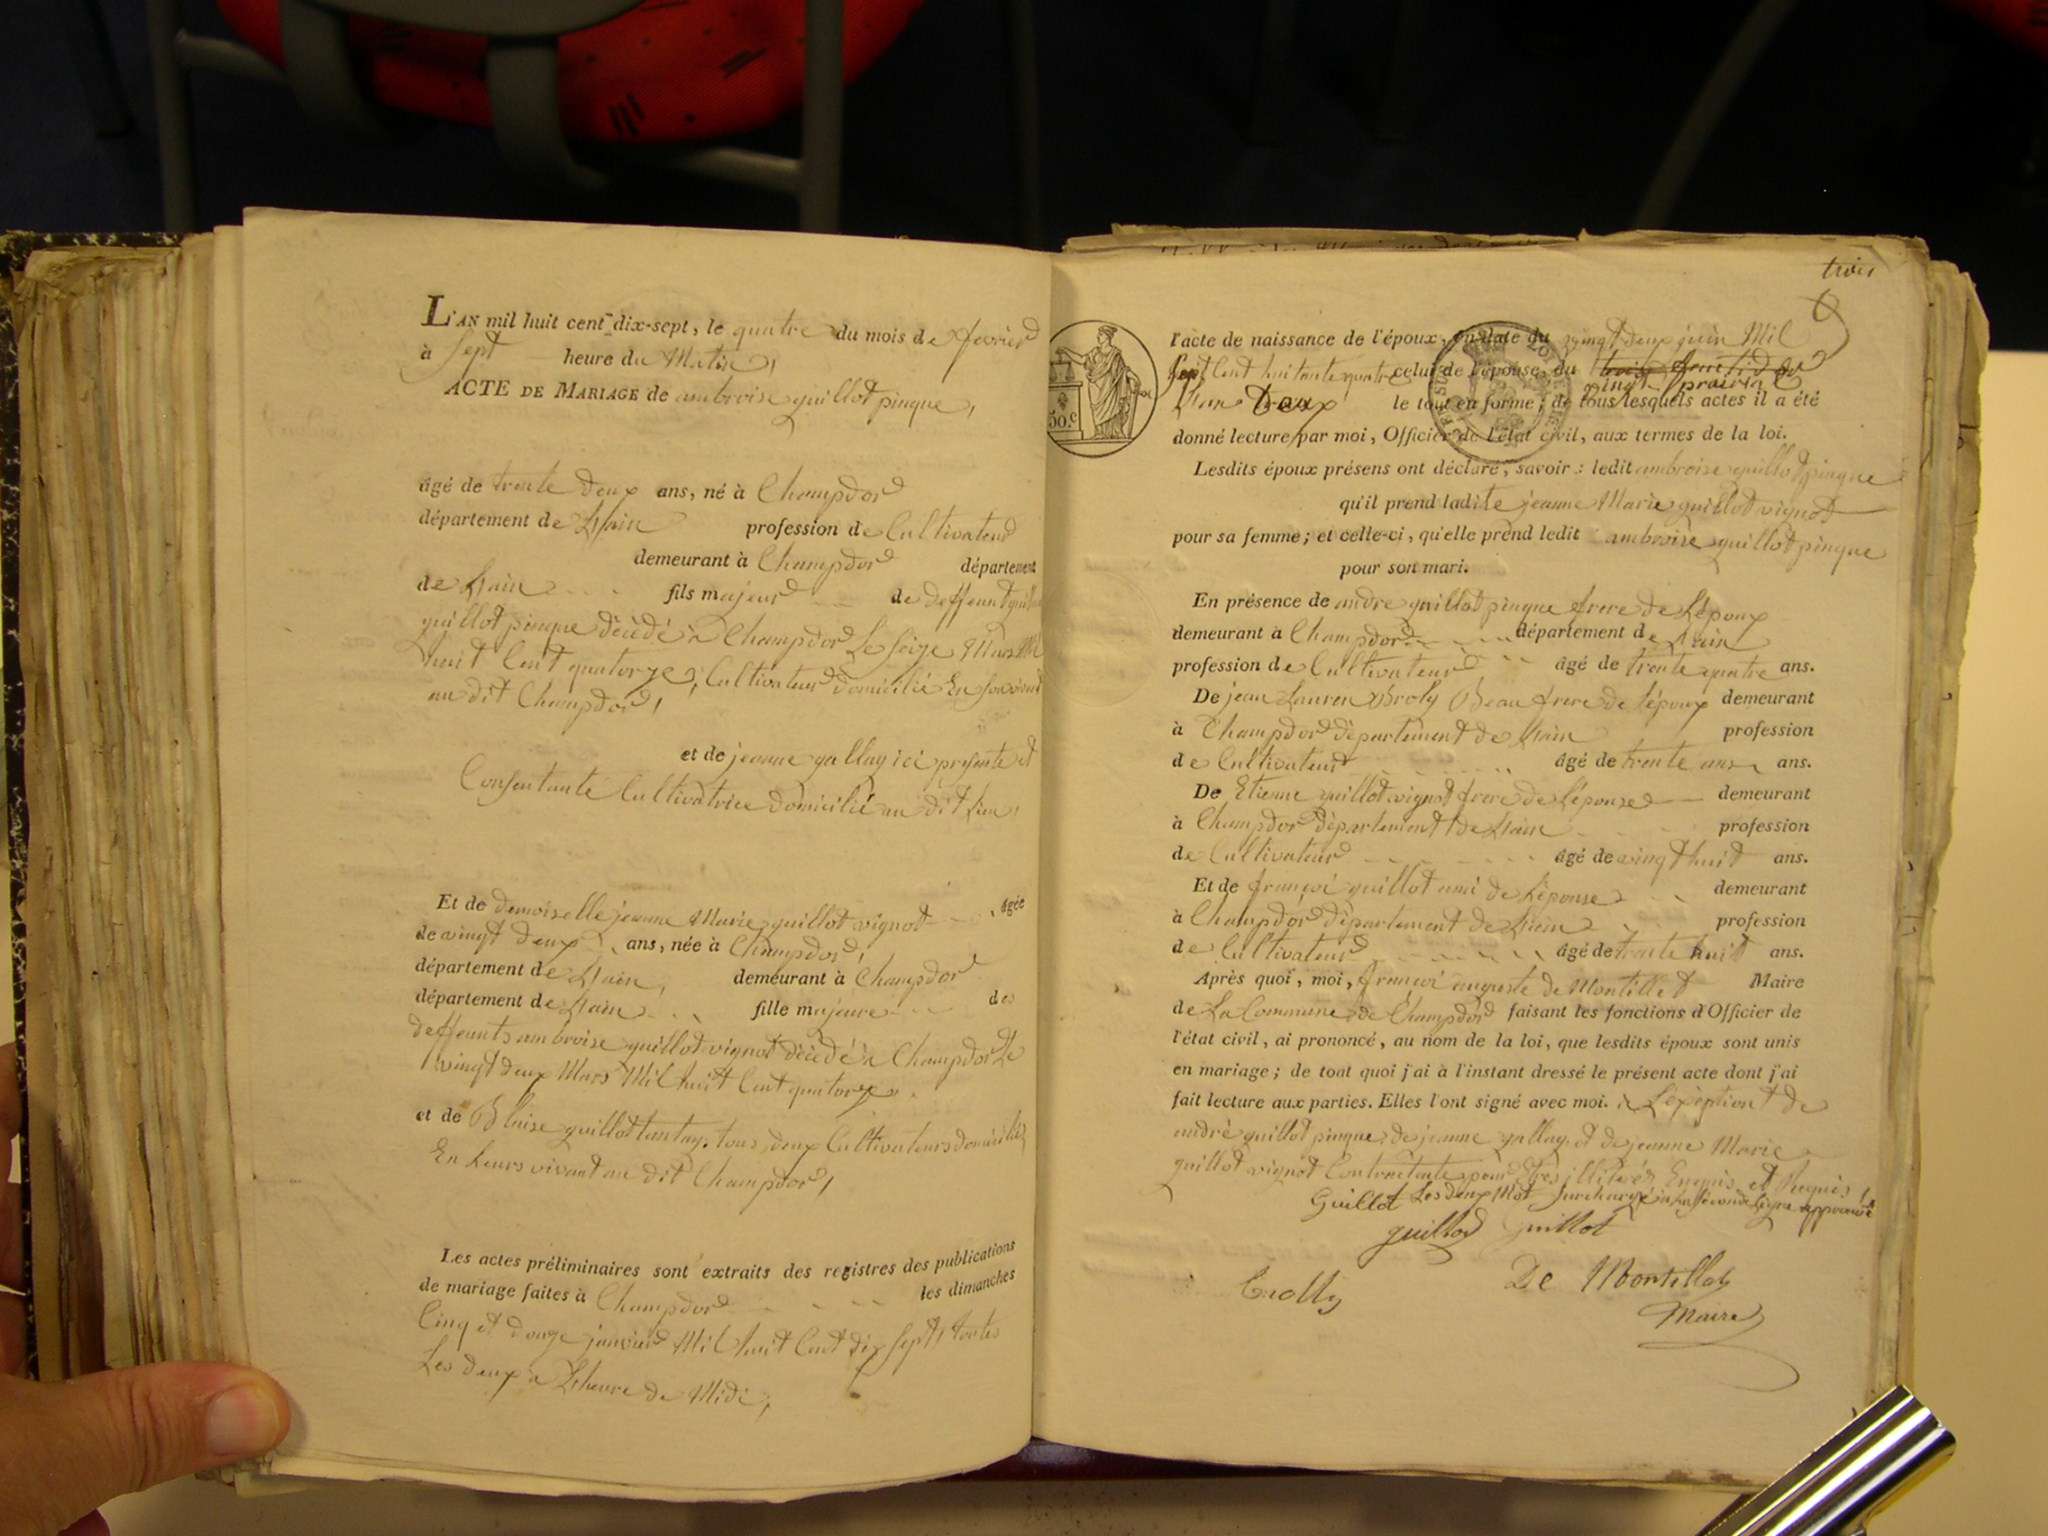 L'AN mil huit cent dix-sept, le quatre du mois de fevrier
à sept heure du Matin,
ACTE DE MARIAGE de ambroise guillot pinque,
âgé de trente deux ans, né à Champdor
département de L'ain profession de Cultivateur
demeurant à Champdor département
de L'ain fils majeur de deffeunt
guillot pinque décédé à Champdor Le seize Mars Mil
huit Cent quatorze, Cultivateur domicilié En son vivant
au dit Champdor,
et de jeanne gallay ici presente et
Consentante Cultivatrice domicilié au dit Lieu,
Et de demoiselle jeanne Marie guillot vignot âgée
de vingt deux ans, née à Champdor,
département de L'ain, demeurant à Champdor
département de L'ain fille majeure des
deffeunts ambroise guillot vignot décédé à Champdor Le
vingt deux Mars Mil huit Cent quatorze
et de Blaise guillot tantay. tous deux Cultivateurs domiciliés
En Leurs vivant au dit Champdor,
Les actes préliminaires sont extraits des registres des publications
de mariage faites à Champdor les dimanches
Cinq et douze janvier Mil huit Cent dix sept, toutes
Les deux a L'heure de Midi,
trois
l'acte de naissance de l'époux, en date du vingt deux juin Mil
Sept Cent huitante quatre celui de l'épouse, du trois fructidor
vingt prairial
L'an Deux le tout en forme; de tous lesquels actes il a été
50.c
donné lecture par moi, Officier de l'état civil, aux termes de la loi.
Lesdits époux présens ont déclaré, savoir: ledit ambroise guillot pinque
qu'il prend ladite jeanne Marie guillot vignot
pour sa femme; et celle-ci, qu'elle prend ledit ambroise guillot pinque
pour son mari.
En présence de andré guillot pinque frere de L'époux
demeurant à Champdor département de L'ain
profession de Cultivateur âgé de trente quatre ans.
De jean Lauren Broly Beau frere de l'époux demeurant
à Champdor département de L'ain profession
de Cultivateur âgé de trente ans ans.
De Etienne guillot vignot frere de l'épouse demeurant
à Champdor département de L'ain profession
de Cultivateur âgé de vingt huit ans.
Et de françoi guillot ami de L'épouse demeurant
à Champdor département de L'ain profession
de Cultivateur âgé de trente huit ans.
Après quoi, moi, françoi auguste de Montillet Maire
de La Commune de Champdor faisant les fonctions d'Officier de
l'état civil, ai prononcé, au nom de la loi, que lesdits époux sont unis
en mariage; de tout quoi j'ai à l'instant dressé le présent acte dont j'ai
fait lecture aux parties. Elles l'ont signé avec moi. à L'exeption de
andré guillot pinque, de jeanne gallay et de jeanne Marie
guillot vignot Contractante pour Etres illitérés Enquis et Requis,
Guillot Les deux Mot surchargé à la seconde Ligne approuvé
guillod Guillot
Crolly De Montillet
Maire